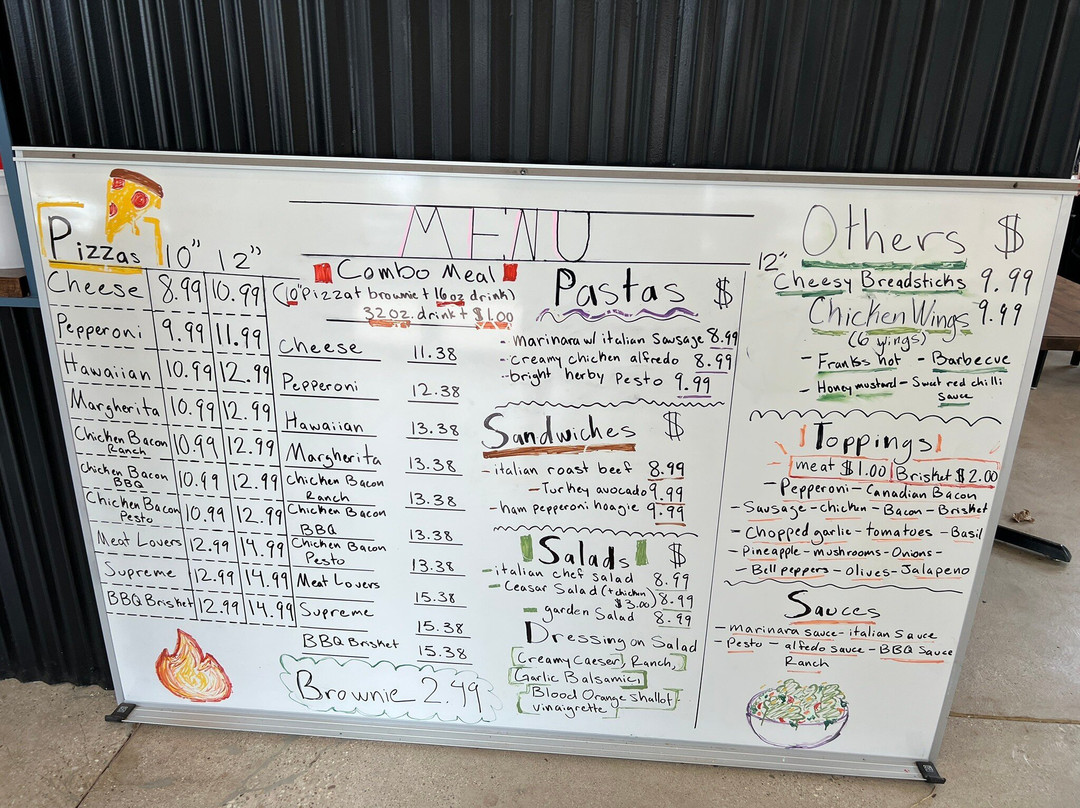 MENU
Pizzas 10" 12"
Cheese 8.99 10.99
Pepperoni 9.99 11.99
Hawaiian 10.99 12.99
Margherita 10.99 12.99
Chicken Bacon Ranch 10.99 12.99
Chicken Bacon BBQ 10.99 12.99
Chicken Bacon Pesto 10.99 12.99
Meat Lovers 12.99 14.99
Supreme 12.99 14.99
BBQ Brisket 12.99 14.99
Combo Meal
(10" Pizza + brownie + 16oz drink)
32oz. drink + $1.00
Cheese 11.38
Pepperoni 12.38
Hawaiian 13.38
Margherita 13.38
Chicken Bacon Ranch 13.38
Chicken Bacon BBQ 13.38
Chicken Bacon Pesto 13.38
Meat Lovers 15.38
Supreme 15.38
BBQ Brisket 15.38
Brownie 2.49
Pastas $
- Marinara w/ italian Sausage 8.99
- Creamy chicken alfredo 8.99
- bright herby Pesto 9.99
Sandwiches $
- italian roast beef 8.99
- Turkey avocado 9.99
- ham pepperoni hoagie 9.99
Salads $
- italian chef salad 8.99
- Ceasar Salad (+ chicken $3.00) 8.99
- garden Salad 8.99
Dressing on Salad
Creamy Caeser, Ranch,
Garlic Balsamic,
Blood Orange Shallot
vinaigrette
Others $
12" Cheesy Breadsticks 9.99
Chicken Wings 9.99
(6 wings)
- Franks hot - Barbecue
- Honey mustard - Sweet red chilli
sauce
Toppings
meat $1.00 Brisket $2.00
- Pepperoni - Canadian Bacon
- Sausage - chicken - Bacon - Brisket
- Chopped garlic - tomatoes - Basil
- Pineapple - mushrooms - Onions -
- Bell peppers - Olives - Jalapeno
Sauces
- marinara sauce - italian Sauce
- Pesto - alfredo sauce - BBQ Sauce
Ranch